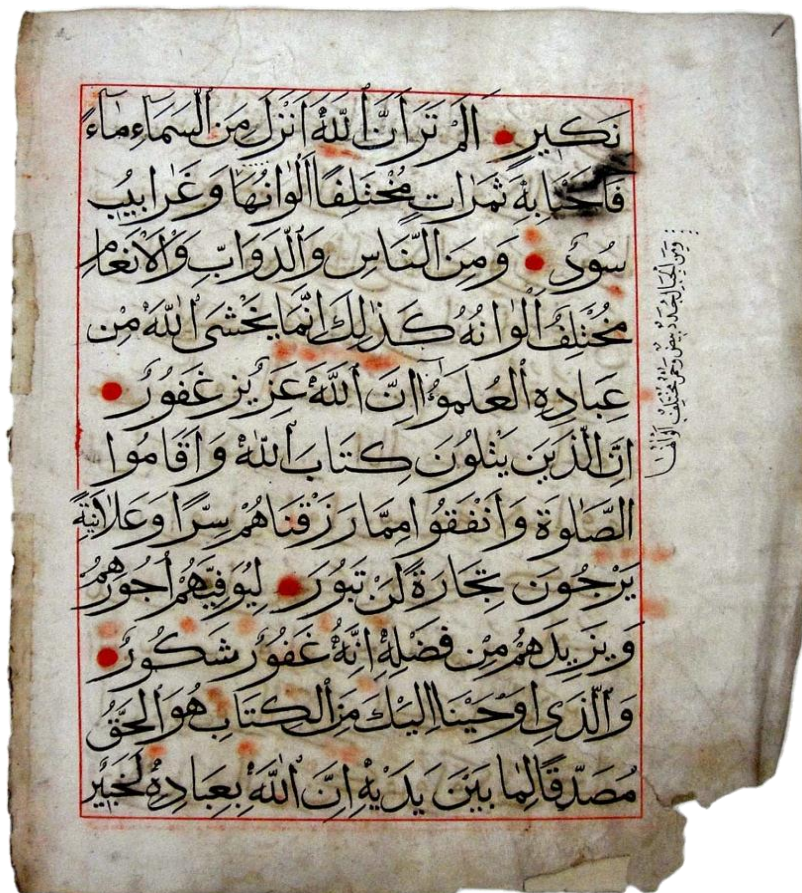 نَكِيرِ اَلَمْ تَرَ اَنَّ اللّٰهَ اَنْزَلَ مِنَ السَّمَاءِ مَاءً
فَاَخْيَا بِهٖ ثَمَرَاتٍ مُخْتَلِفًا اَلْوَانُهَا وَغَرَابِيبُ
سُودٌ وَمِنَ النَّاسِ وَالدَّوَابِّ وَالْاَنْعَامِ
مُخْتَلِفٌ اَلْوَانُهُ كَذٰلِكَ اِنَّمَا يَخْشَى اللّٰهَ مِنْ
عِبَادِهِ الْعُلَمٰؤُا اِنَّ اللّٰهَ عَزِيزٌ غَفُورٌ
اِنَّ الَّذِينَ يَتْلُونَ كِتَابَ اللّٰهِ وَاَقَامُوا
الصَّلٰوةَ وَاَنْفَقُوا مِمَّا رَزَقْنَاهُمْ سِرًّا وَعَلَانِيَةً
يَرْجُونَ تِجَارَةً لَنْ تَبُورَ لِيُوَفِّيَهُمْ اُجُورَهُمْ
وَيَزِيدَهُمْ مِنْ فَضْلِهٖ اِنَّهُ غَفُورٌ شَكُورٌ
وَالَّذِى اَوْحَيْنَا اِلَيْكَ مِنَ الْكِتَابِ هُوَ الْحَقُّ
مُصَدِّقًا لِمَا بَيْنَ يَدَيْهِ اِنَّ اللّٰهَ بِعِبَادِهٖ لَخَبِيرٌ
وَمِنَ الْجِبَالِ جُدَدٌ بِيضٌ وَحُمْرٌ مُخْتَلِفٌ اَلْوَانُهَا